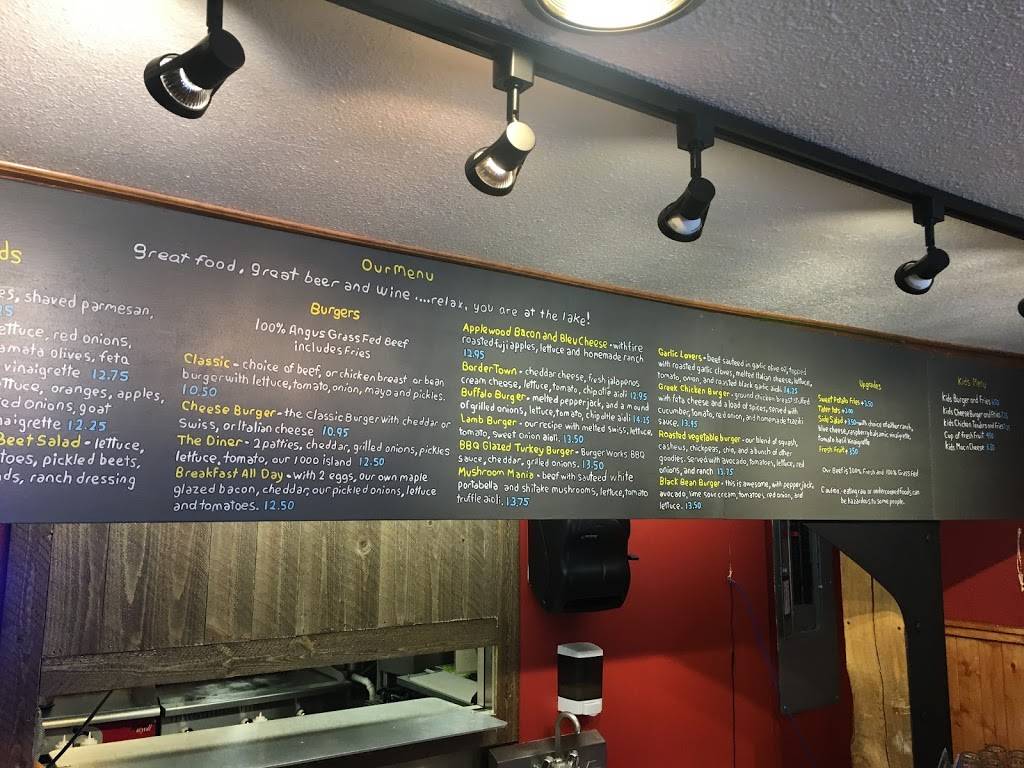 ds
es, shaved parmesan,
ettuce, red onions,
amata olives, feta
vinaigrette 12.75
ettuce, oranges, apples,
red onions, goat
naigrette 12.25
Beet Salad - lettuce,
toes, pickled beets,
ds, ranch dressing
Our Menu
great food, great beer and wine ....relax, you are at the lake!
Burgers
100% Angus Grass Fed Beef
includes Fries
Classic - choice of beef, or chicken breast or bean
burger with lettuce, tomato, onion, mayo and pickles.
10.50
Cheese Burger - the Classic Burger with cheddar or
Swiss, or Italian cheese 10.95
The Diner - 2 patties, cheddar, grilled onions, pickles
lettuce, tomato, our 1000 island 12.50
Breakfast All Day - with 2 eggs, our own maple
glazed bacon, cheddar, our pickled onions, lettuce
and tomatoes. 12.50
Applewood Bacon and Bleu Cheese - with fire
roasted fuji apples, lettuce and homemade ranch
12.95
Border Town - cheddar cheese, fresh jalapenos
cream cheese, lettuce, tomato, chipotle aioli 12.95
Buffalo Burger - melted pepper jack, and a mound
of grilled onions, lettuce, tomato, chipotle aioli 14.25
Lamb Burger - our recipe with melted Swiss, lettuce,
tomato, sweet onion aioli. 13.50
BBQ Glazed Turkey Burger - Burger Works BBQ
sauce, cheddar, grilled onions. 13.50
Mushroom Mania - beef with sauteed white
portabella and shitake mushrooms, lettuce, tomato
truffle aioli. 13.75
Garlic Lovers - beef sauteed in garlic olive oil, topped
with roasted garlic cloves, melted Italian cheese, lettuce,
tomato, onion, and roasted black garlic aioli. 14.25
Greek Chicken Burger - ground chicken breast stuffed
with feta cheese and a load of spices, served with
cucumber, tomato, red onion, and homemade tzaziki
sauce. 13.95
Roasted vegetable burger - our blend of squash,
cashews, chickpeas, chia, and a bunch of other
goodies. Served with avocado, tomatoes, lettuce, red
onions, and ranch 13.75
Black Bean Burger - this is awesome, with pepper jack,
avocado, lime sour cream, tomatoes, red onion, and
lettuce. 13.50
Upgrades
Sweet Potato Fries
Tater tots
Side Salad with choice of either ranch,
blue cheese, raspberry balsamic vinaigrette,
tomato basil vinaigrette
Fresh Fruit
Our Beef is 100% Fresh and 100% Grass Fed
Caution: eating raw or undercooked foods can
be hazardous to some people.
Kids Menu
Kids Burger and Fries
Kids Cheese Burger and Fries
Kids Chicken Tenders and Fries
Cup of fresh Fruit
Kids Mac n Cheese